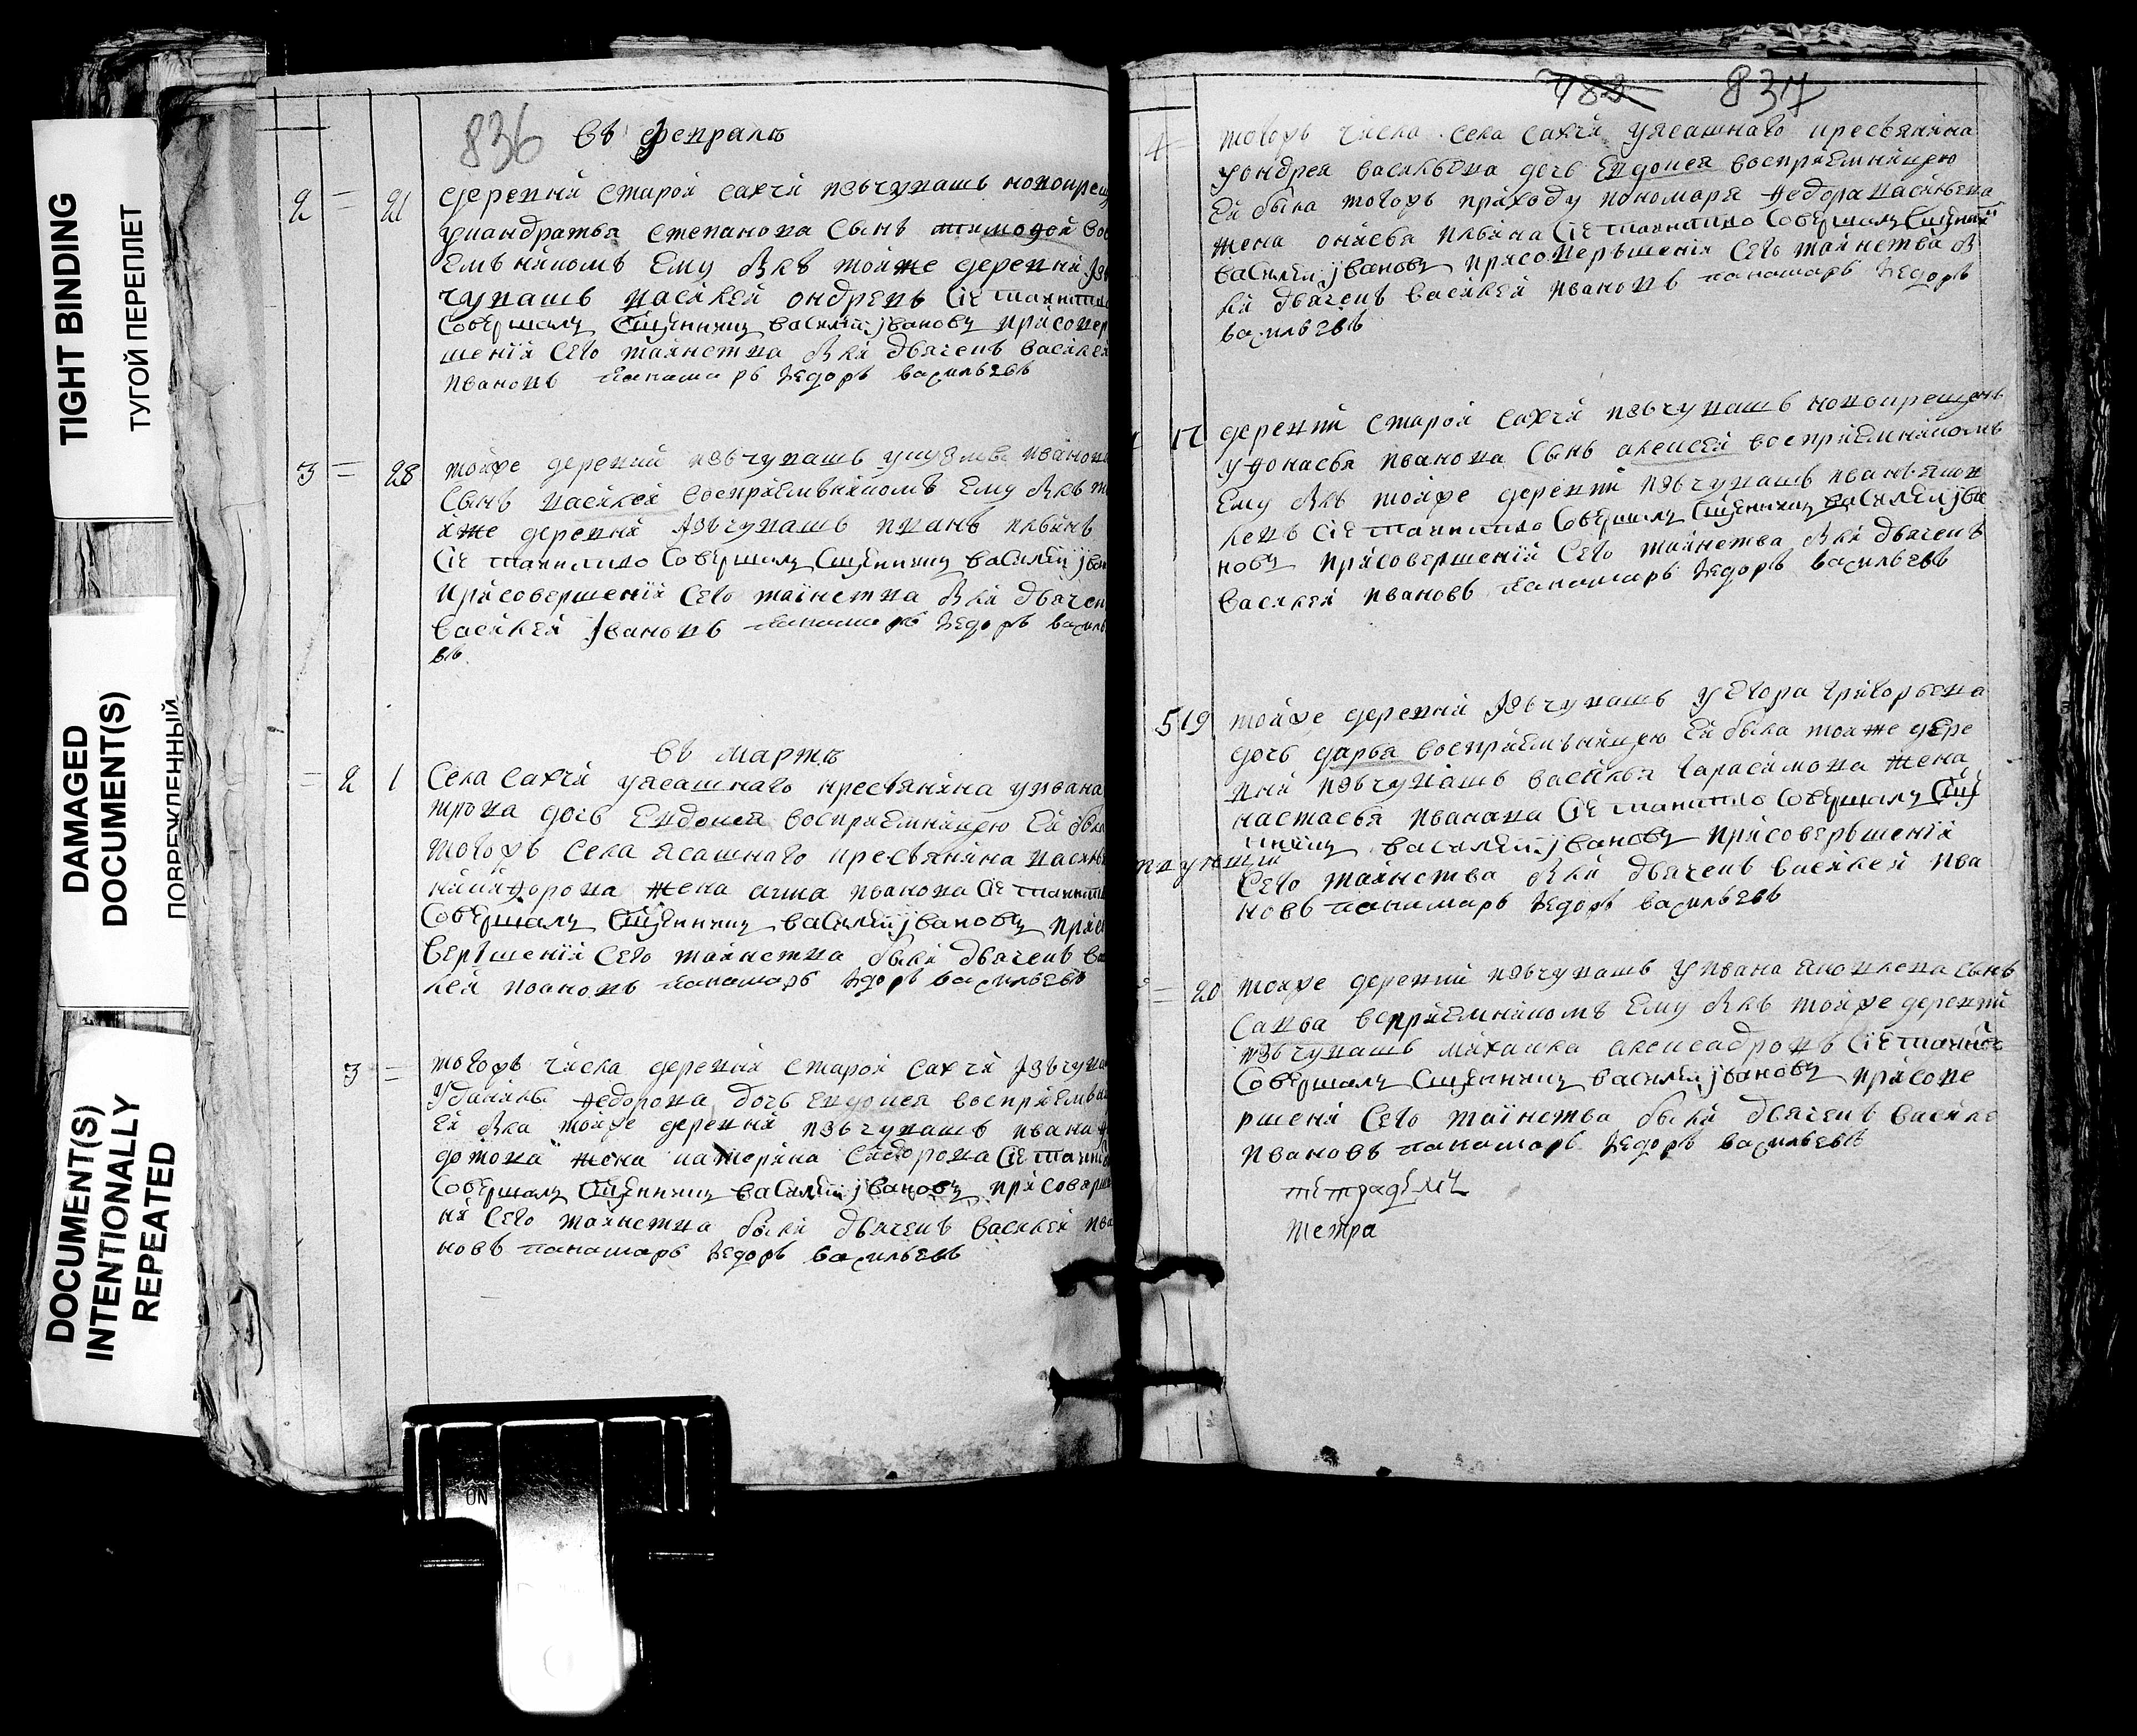 TIGHT BINDING
ТУГОЙ ПЕРЕПЛЕТ
DAMAGED
DOCUMENT(S)
ПОВРЕЖДЕННЫЙ
DOCUMENT(S)
INTENTIONALLY
REPEATED
836 въ феврале
2 = 21 деревни старой сахчи изъчувашъ новокрещ
укандратья степанова сынъ тимофей вос
емъникомъ ему былъ тойже деревни изъ
чувашъ василей ондреевъ сие таинство
совершалъ священникъ василий ивановъ присовер
шении сего таинства были дьячекъ василей
ивановъ панамарь федоръ васильевъ
3 = 28 тойже деревни изъчувашъ иванова
сынъ василей восприемъникомъ ему былъ то
йже деревни изъчувашъ иванъ ильинъ
сие таинство совершалъ священникъ василий иван
присовершении сего таинства были дьячек
василей ивановъ панамарь федоръ василь
евъ
въ марте
= 2 1 села сахчи уясашнаго кресьянина уивана
трова дочь евдокея восприемницею ей была
тогожъ села ясашнаго кресьянина василья
жена анна иванова сие таинство
совершалъ священникъ василий ивановъ присо
вершении сего таинства были дьячекъ ва
лей ивановъ панамарь федоръ васильевъ
3 = тогожъ числа деревни старой сахчи изъчува
уданилы федорова дочь евдокея восприемъ
ей была тойже деревни изъчувашъ ивана
жена катерина сидорова сие таинство
совершалъ священникъ василий ивановъ присоверше
ни сего таинства были дьячекъ василей ива
новъ панамарь федоръ васильевъ
782 837
4 = тогожъ числа села сахчи уясашнаго кресьянина
уондрея васильева дочь евдокея восприемницею
ей была тогожъ приходу пономаря федора васильева
жена онисья ильина сие таинство совершалъ священни
василий ивановъ присовершении сего таинства бы
ли дьячекъ василей ивановъ панамарь федоръ
васильевъ
17 деревни старой сахчи изъчувашъ новокрещенъ
уафонасья иванова сынъ алексей восприемникомъ
ему былъ тойже деревни изъчувашъ иванъ яков
левъ сие таинство совершалъ священникъ василий ива
новъ присовершении сего таинства были дьячекъ
василей ивановъ панамарь федоръ васильевъ
5 19 тойже деревни изъчувашъ уегора григорьева
дочь дарья восприемъницею ей была тойже дере
вни изъчувашъ василья гарасимова жена
настасья иванова сие таинство совершалъ свящ
енникъ василий ивановъ присовершении
сего таинства были дьячекъ василей ива
новъ панамарь федоръ васильевъ
= 20 тойже деревни изъчувашъ уивана яковлева сынъ
савва восприемникомъ ему былъ тойже деревни
изъчувашъ михайла алексадровъ сие таинство
совершалъ священникъ василий ивановъ присове
ршени сего таинства были дьячекъ василей
ивановъ панамарь федоръ васильевъ
тетра